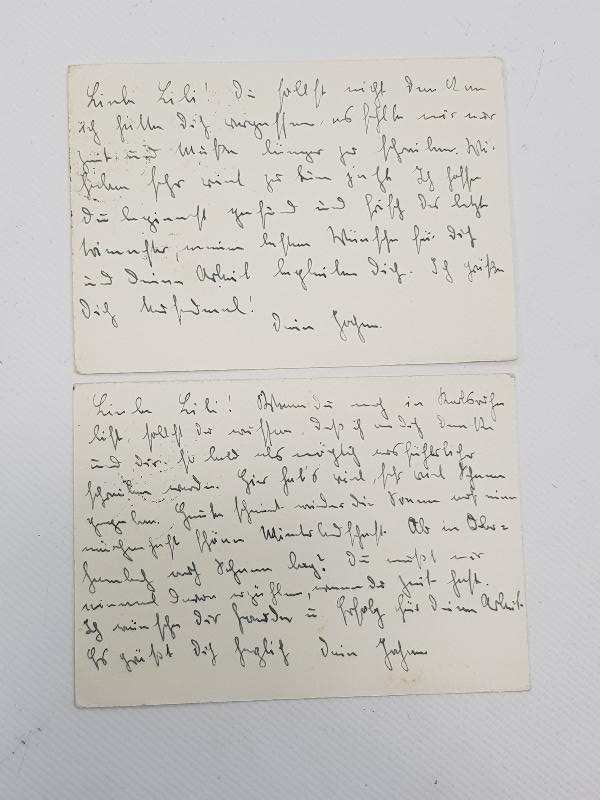 Liebe Lili! Du sollst nicht denken
ich hätte Dich vergessen, es fehlte mir nur
Zeit und Muße länger zu schreiben. Wir
haben sehr viel zu tun jetzt. Ich hoffe
Du beginnst gesund und frisch das letzte
Trimester, meine besten Wünsche für Dich
und Deine Arbeit begleiten Dich. Ich grüße
Dich tausendmal!
Dein
Liebe Lili! Wenn du noch in Karlsruhe
bist, sollst du wissen, daß ich an dich denke
und dir so bald als möglich ausführlicher
schreiben werde. Hier hat's viel, sehr viel Schnee
gegeben. Heute scheint wieder die Sonne auf eine
märchenhaft schöne Winterlandschaft. Ob in
auch Schnee lag? Du mußt mir
einmal davon erzählen, wenn du Zeit hast.
Ich wünsche dir Freude u. Erfolg für Deine Arbeit.
Es grüßt Dich herzlich Dein